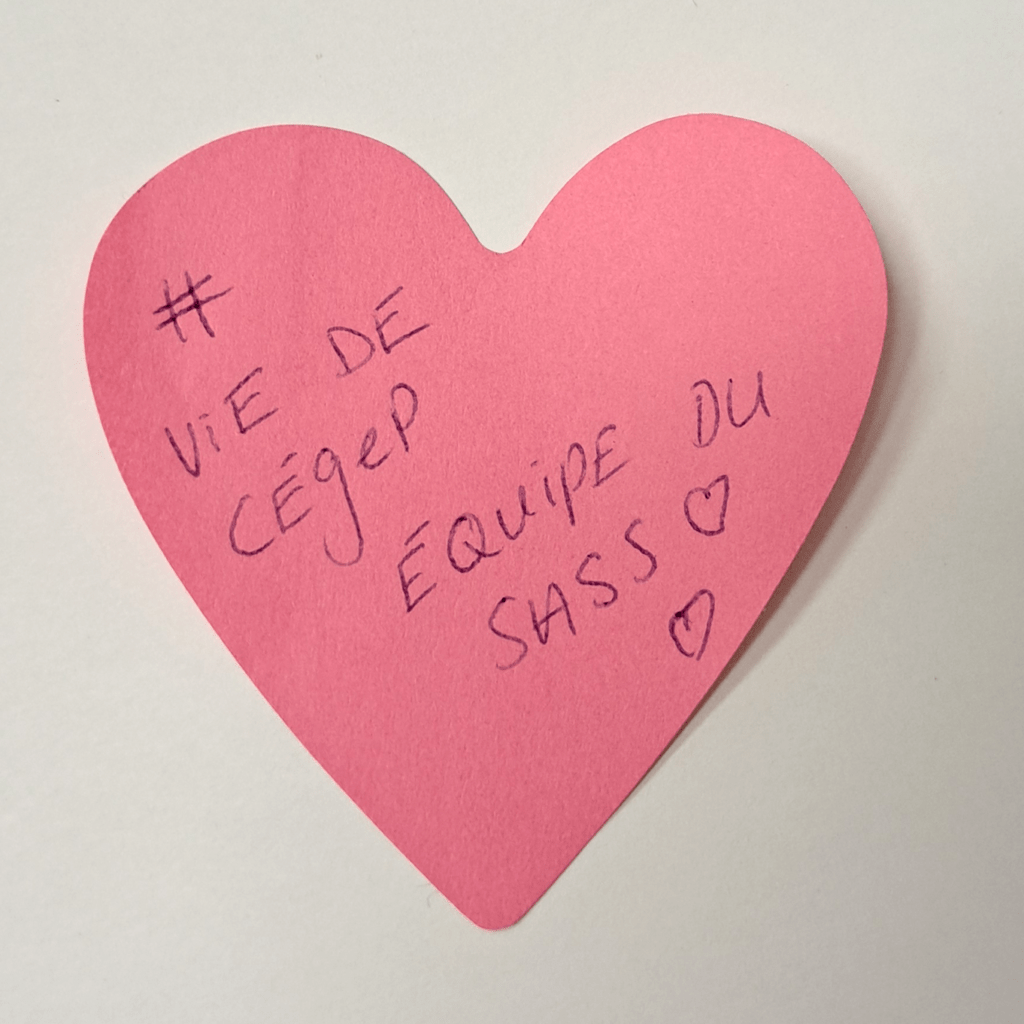 #
ViE DE
CÉgeP
ÉQuiPE DU
SASS ♡
♡